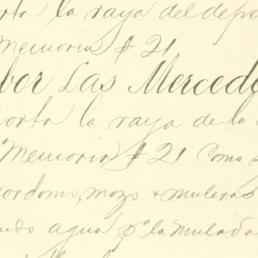 orta la raya del depe
Memoria # 21
bor Las Mercede
orta la raya de la
Memoria # 21 Como
ordomo, mozo + muleras
ndo agua pa la mulada